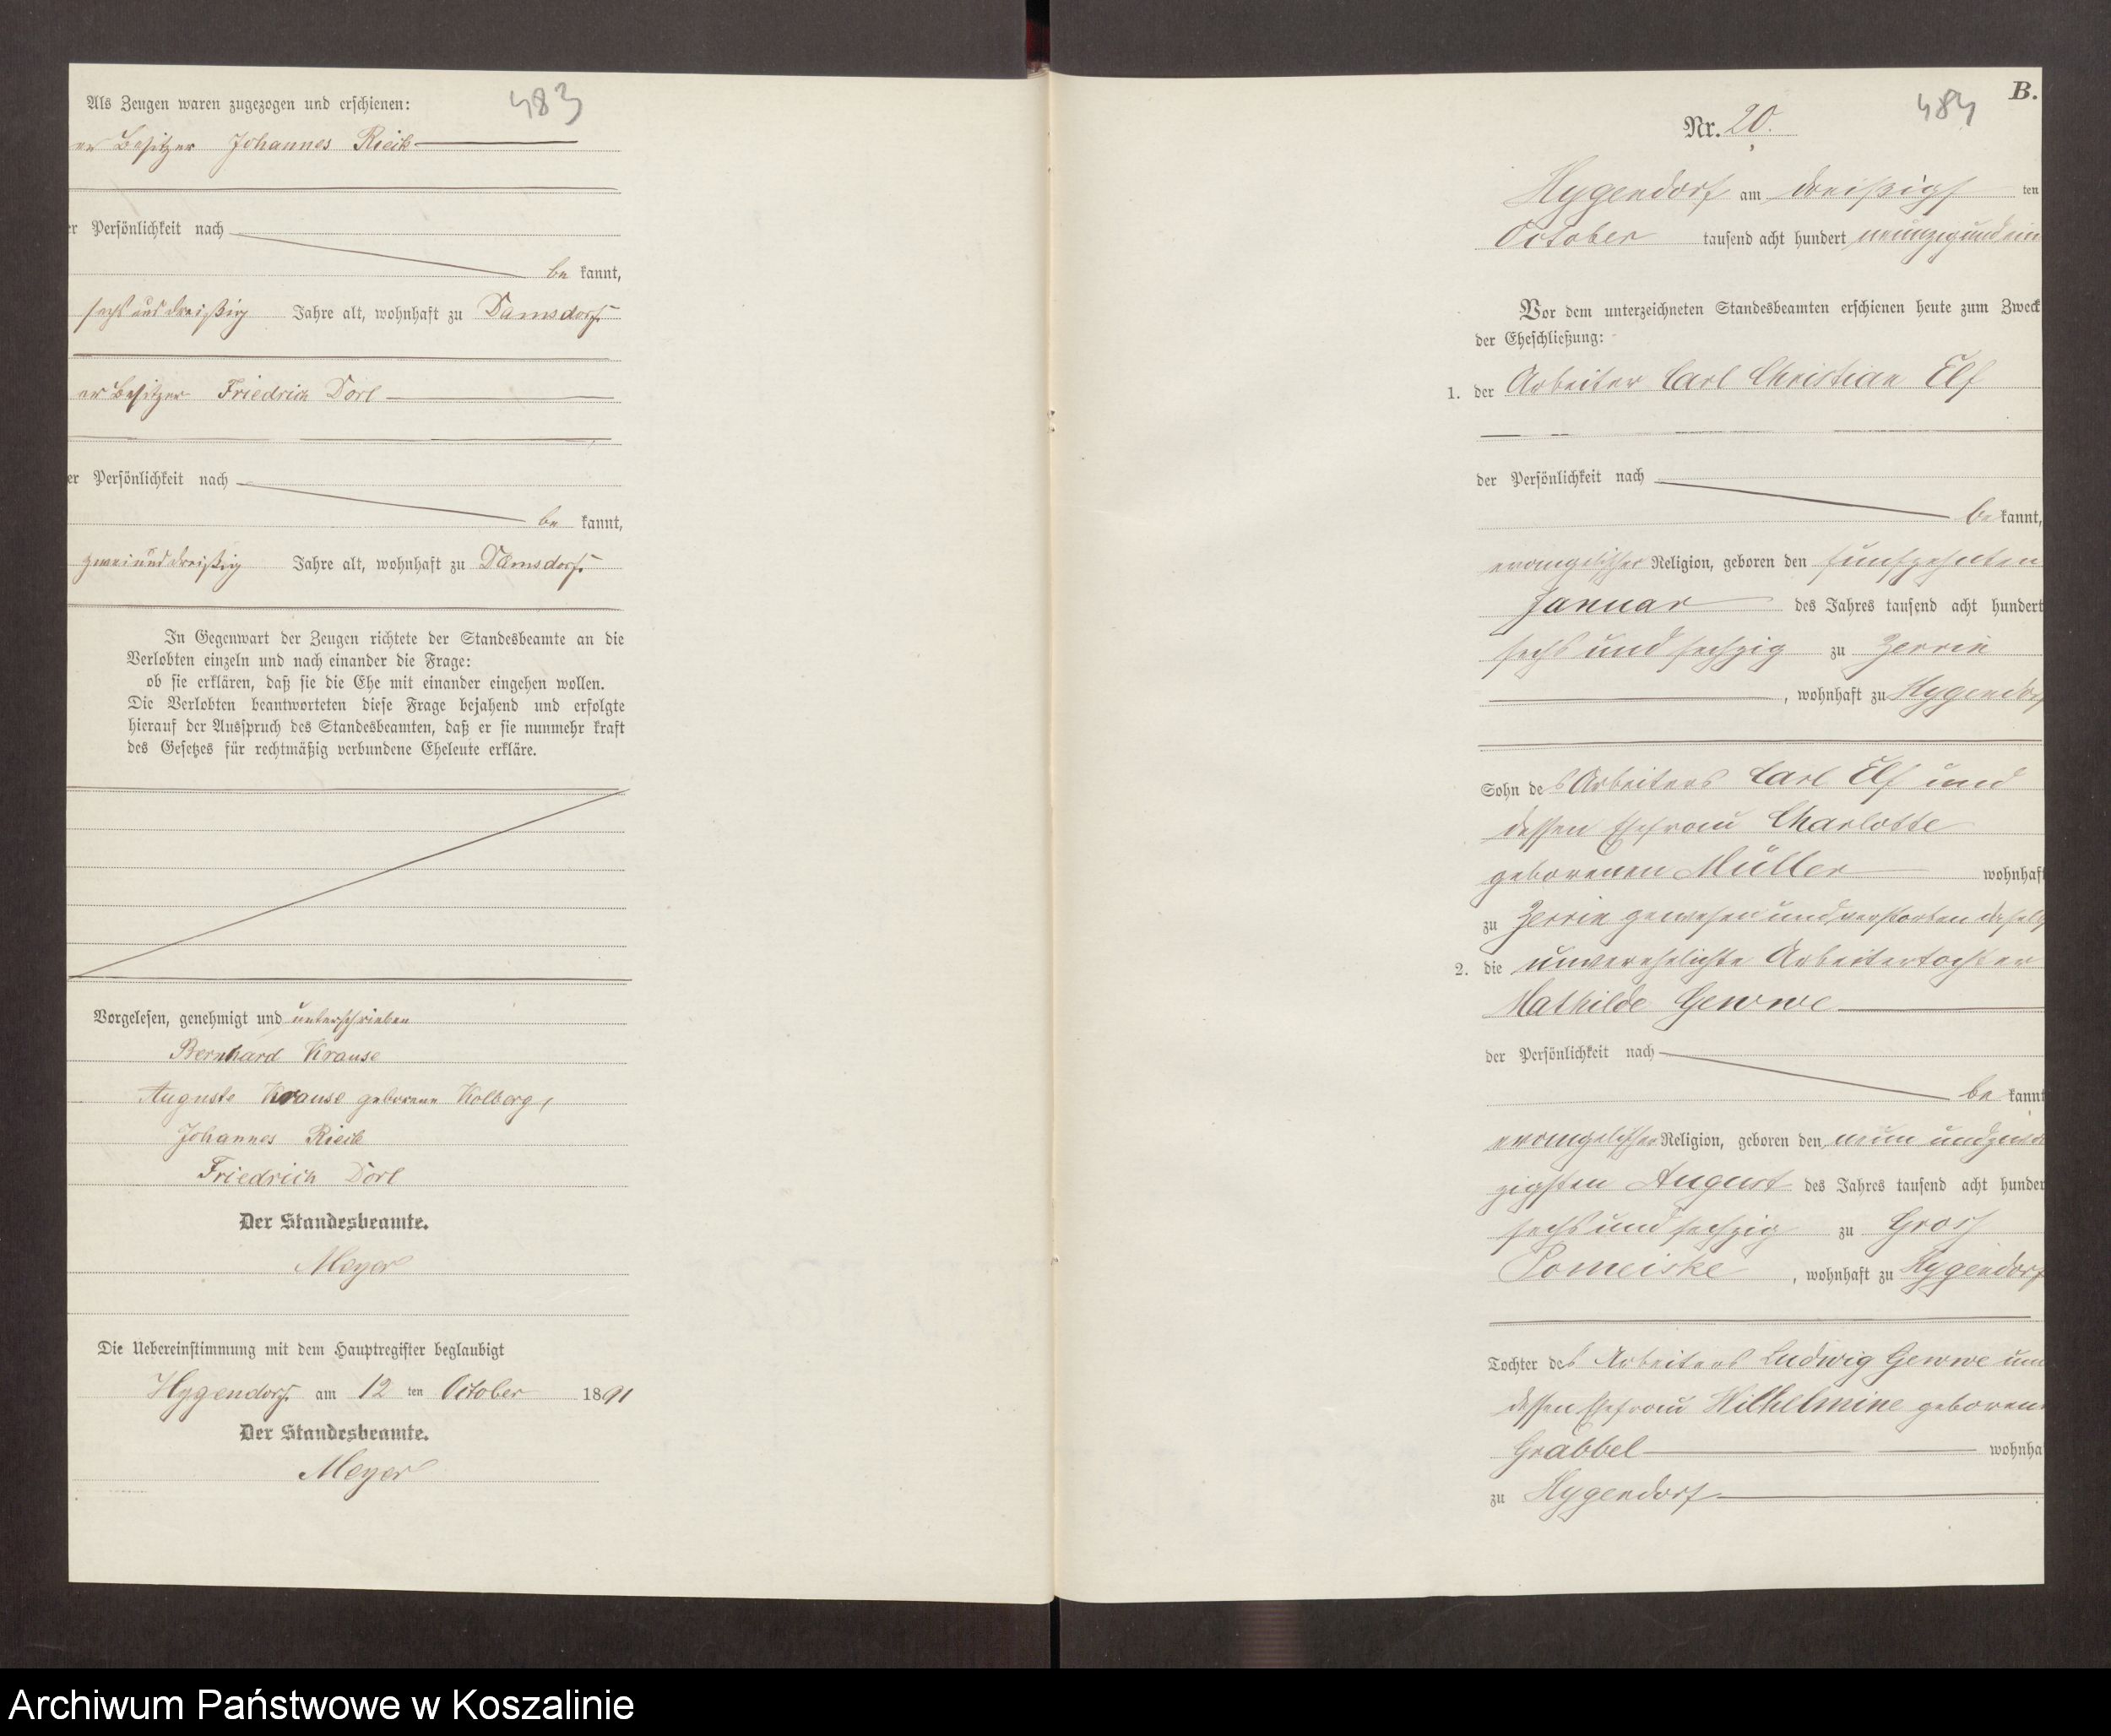 483
Als Zeugen waren zugezogen und erschienen:
er Besitzer Johannes Rieck
er Persönlichkeit nach
be kannt,
sechs und dreißig Jahre alt, wohnhaft zu Damsdorf
er Besitzer Friedrich Dorl
er Persönlichkeit nach
be kannt,
zwei und dreißig Jahre alt, wohnhaft zu Damsdorf.
In Gegenwart der Zeugen richtete der Standesbeamte an die
Verlobten einzeln und nach einander die Frage:
ob sie erklären, daß sie die Ehe mit einander eingehen wollen.
Die Verlobten beantworteten diese Frage bejahend und erfolgte
hierauf der Ausspruch des Standesbeamten, daß er sie nunmehr kraft
des Gesetzes für rechtmäßig verbundene Eheleute erkläre.
Vorgelesen, genehmigt und unterschrieben
Bernhard Krause
Auguste Krause geborene Kolberg,
Johannes Rieck
Friedrich Dorl
Der Standesbeamte.
Meyer
Die Uebereinstimmung mit dem Hauptregister beglaubigt
Hygendorf. am 12 ten October 1891
Der Standesbeamte.
Meyer
B.
484
Nr. 20.
Hygendorf am dreißigs ten
October tausend acht hundert neunzig und ein
Vor dem unterzeichneten Standesbeamten erschienen heute zum Zweck
der Eheschließung:
1. der Arbeiter Carl Christian Elf
der Persönlichkeit nach
be kannt,
evangelischer Religion, geboren den fünfzehnten
Januar des Jahres tausend acht hundert
sechs und sechzig zu Zerrin
, wohnhaft zu Hygendorf
Sohn des Arbeiters Carl Elf und
dessen Ehefrau Charlotte
geborenen Müller wohnhaft
zu Zerrin gewesen und verstorben daselbs
2. die unverehelichte Arbeitertochter
Mathilde Gewwe
der Persönlichkeit nach
be kannt
evangelischer Religion, geboren den neun und zwan
zigsten August des Jahres tausend acht hunder
sechs und sechzig zu Gross
Pomeiske, wohnhaft zu Hygendorf
Tochter des Arbeiters Ludwig Gewwe und
dessen Ehefrau Wilhelmine geborene
Grabbel wohnha
zu Hygendorf
Archiwum Państwowe w Koszalinie